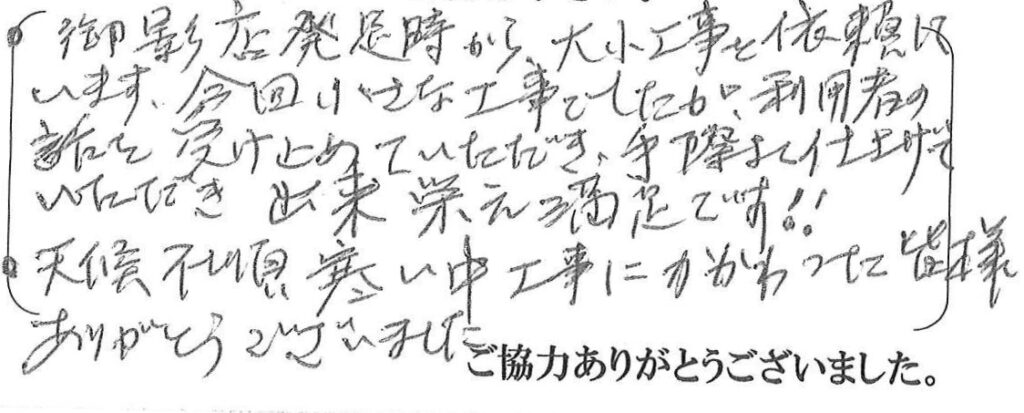 御影店発足時から、大小工事を依頼して
います。今回小さな工事でしたが、利用者の
話を受け止めていただき、手際よく仕上げて
いただき 出来栄え満足です!!
天候不順 寒い中 工事にかかわった皆様
ありがとうございました
ご協力ありがとうございました。